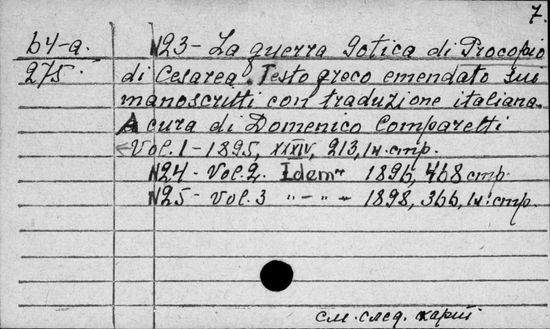 7.
64-a. N23- La guerra Gotica di Procopio
275 di Cesarea. Testo greco emendato sui
manoscritti con traduzione italiana.
A cura di Domenico Comparetti
Vol. 1-1895, XXXIV, 213, 1 н. стр.
N24- Vol. 2. Idem 1896, 468 стр.
N25- Vol. 3 "-"-" 1898, 366, 1 н. стр.
см. след. карт